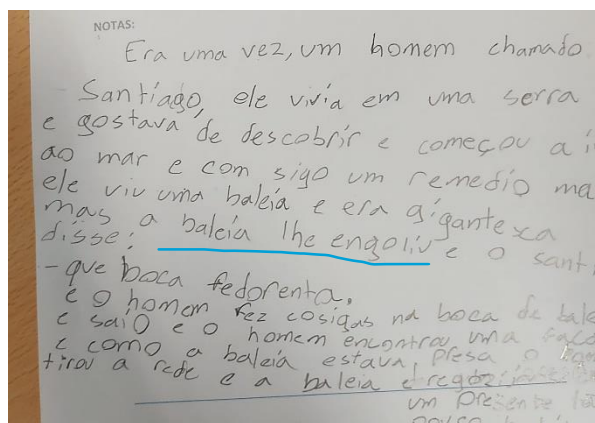 NOTAS:
Era uma vez, um homem chamado
Santiago, ele vivia em uma serra
e gostava de descobrir e começou a i
ao mar e com sigo um remedio ma
ele viu uma baleia e era gigantexca
mas a baleia lhe engoliu e o sant
disse:
- que boca fedorenta.
e o homem fez cosigas na boca de bale
e saiO e o homem encontrou uma faco
e como a baleia estava presa o hom
tirou a rede e a baleia e
um presente